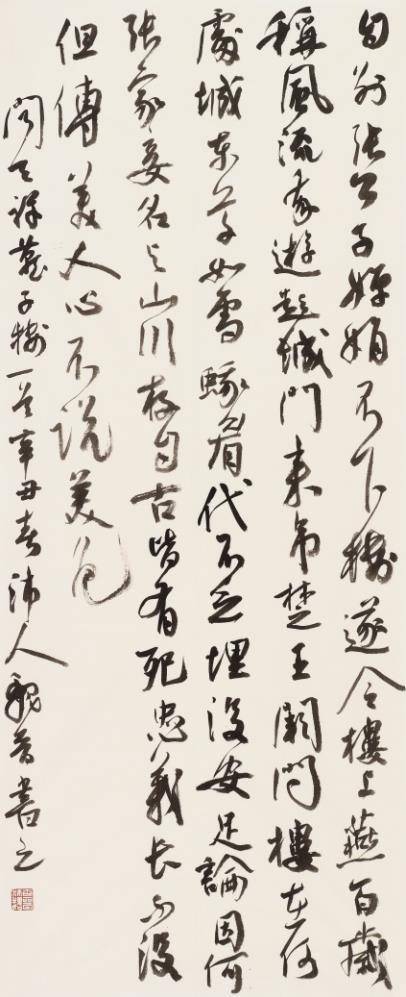 自別張公子嬋娟不下樓遂令樓上燕百歲
稱風流我遊彭城門來弔楚王闕問樓在何
處城東草如雪蛾眉代不乏埋沒安足論因何
張家妾名與山川存自古皆有死忠義長不沒
但傳美人心不說美色
天祥燕子樓一首辛丑春沛人魏書之